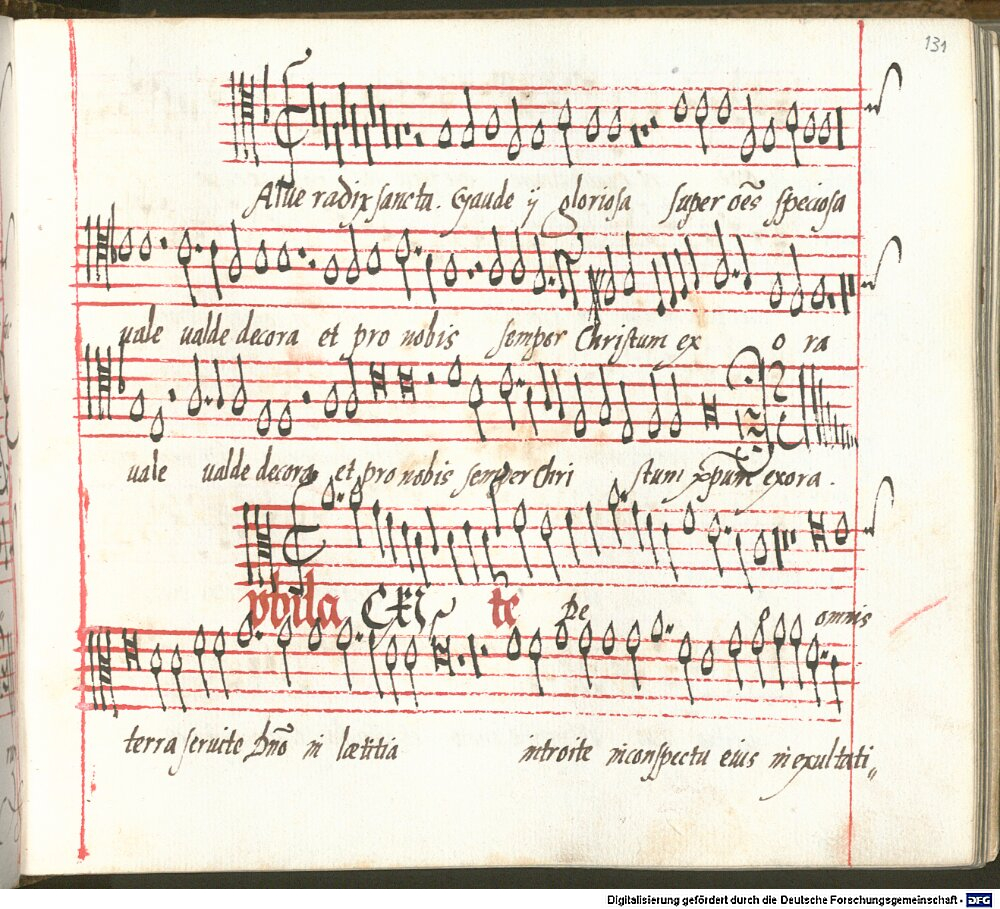 131
Alue radix sancta. Gaude ij gloriosa super oẽs speciosa
uale ualde decora et pro nobis semper Christum ex o ra
uale ualde decora et pro nobis semper Chri stum xp̃um exora.
Vbila te De omnis
terra seruite Dño in lætitia introite in conspectu eius in exultati„
Digitalisierung gefördert durch die Deutsche Forschungsgemeinschaft - DFG